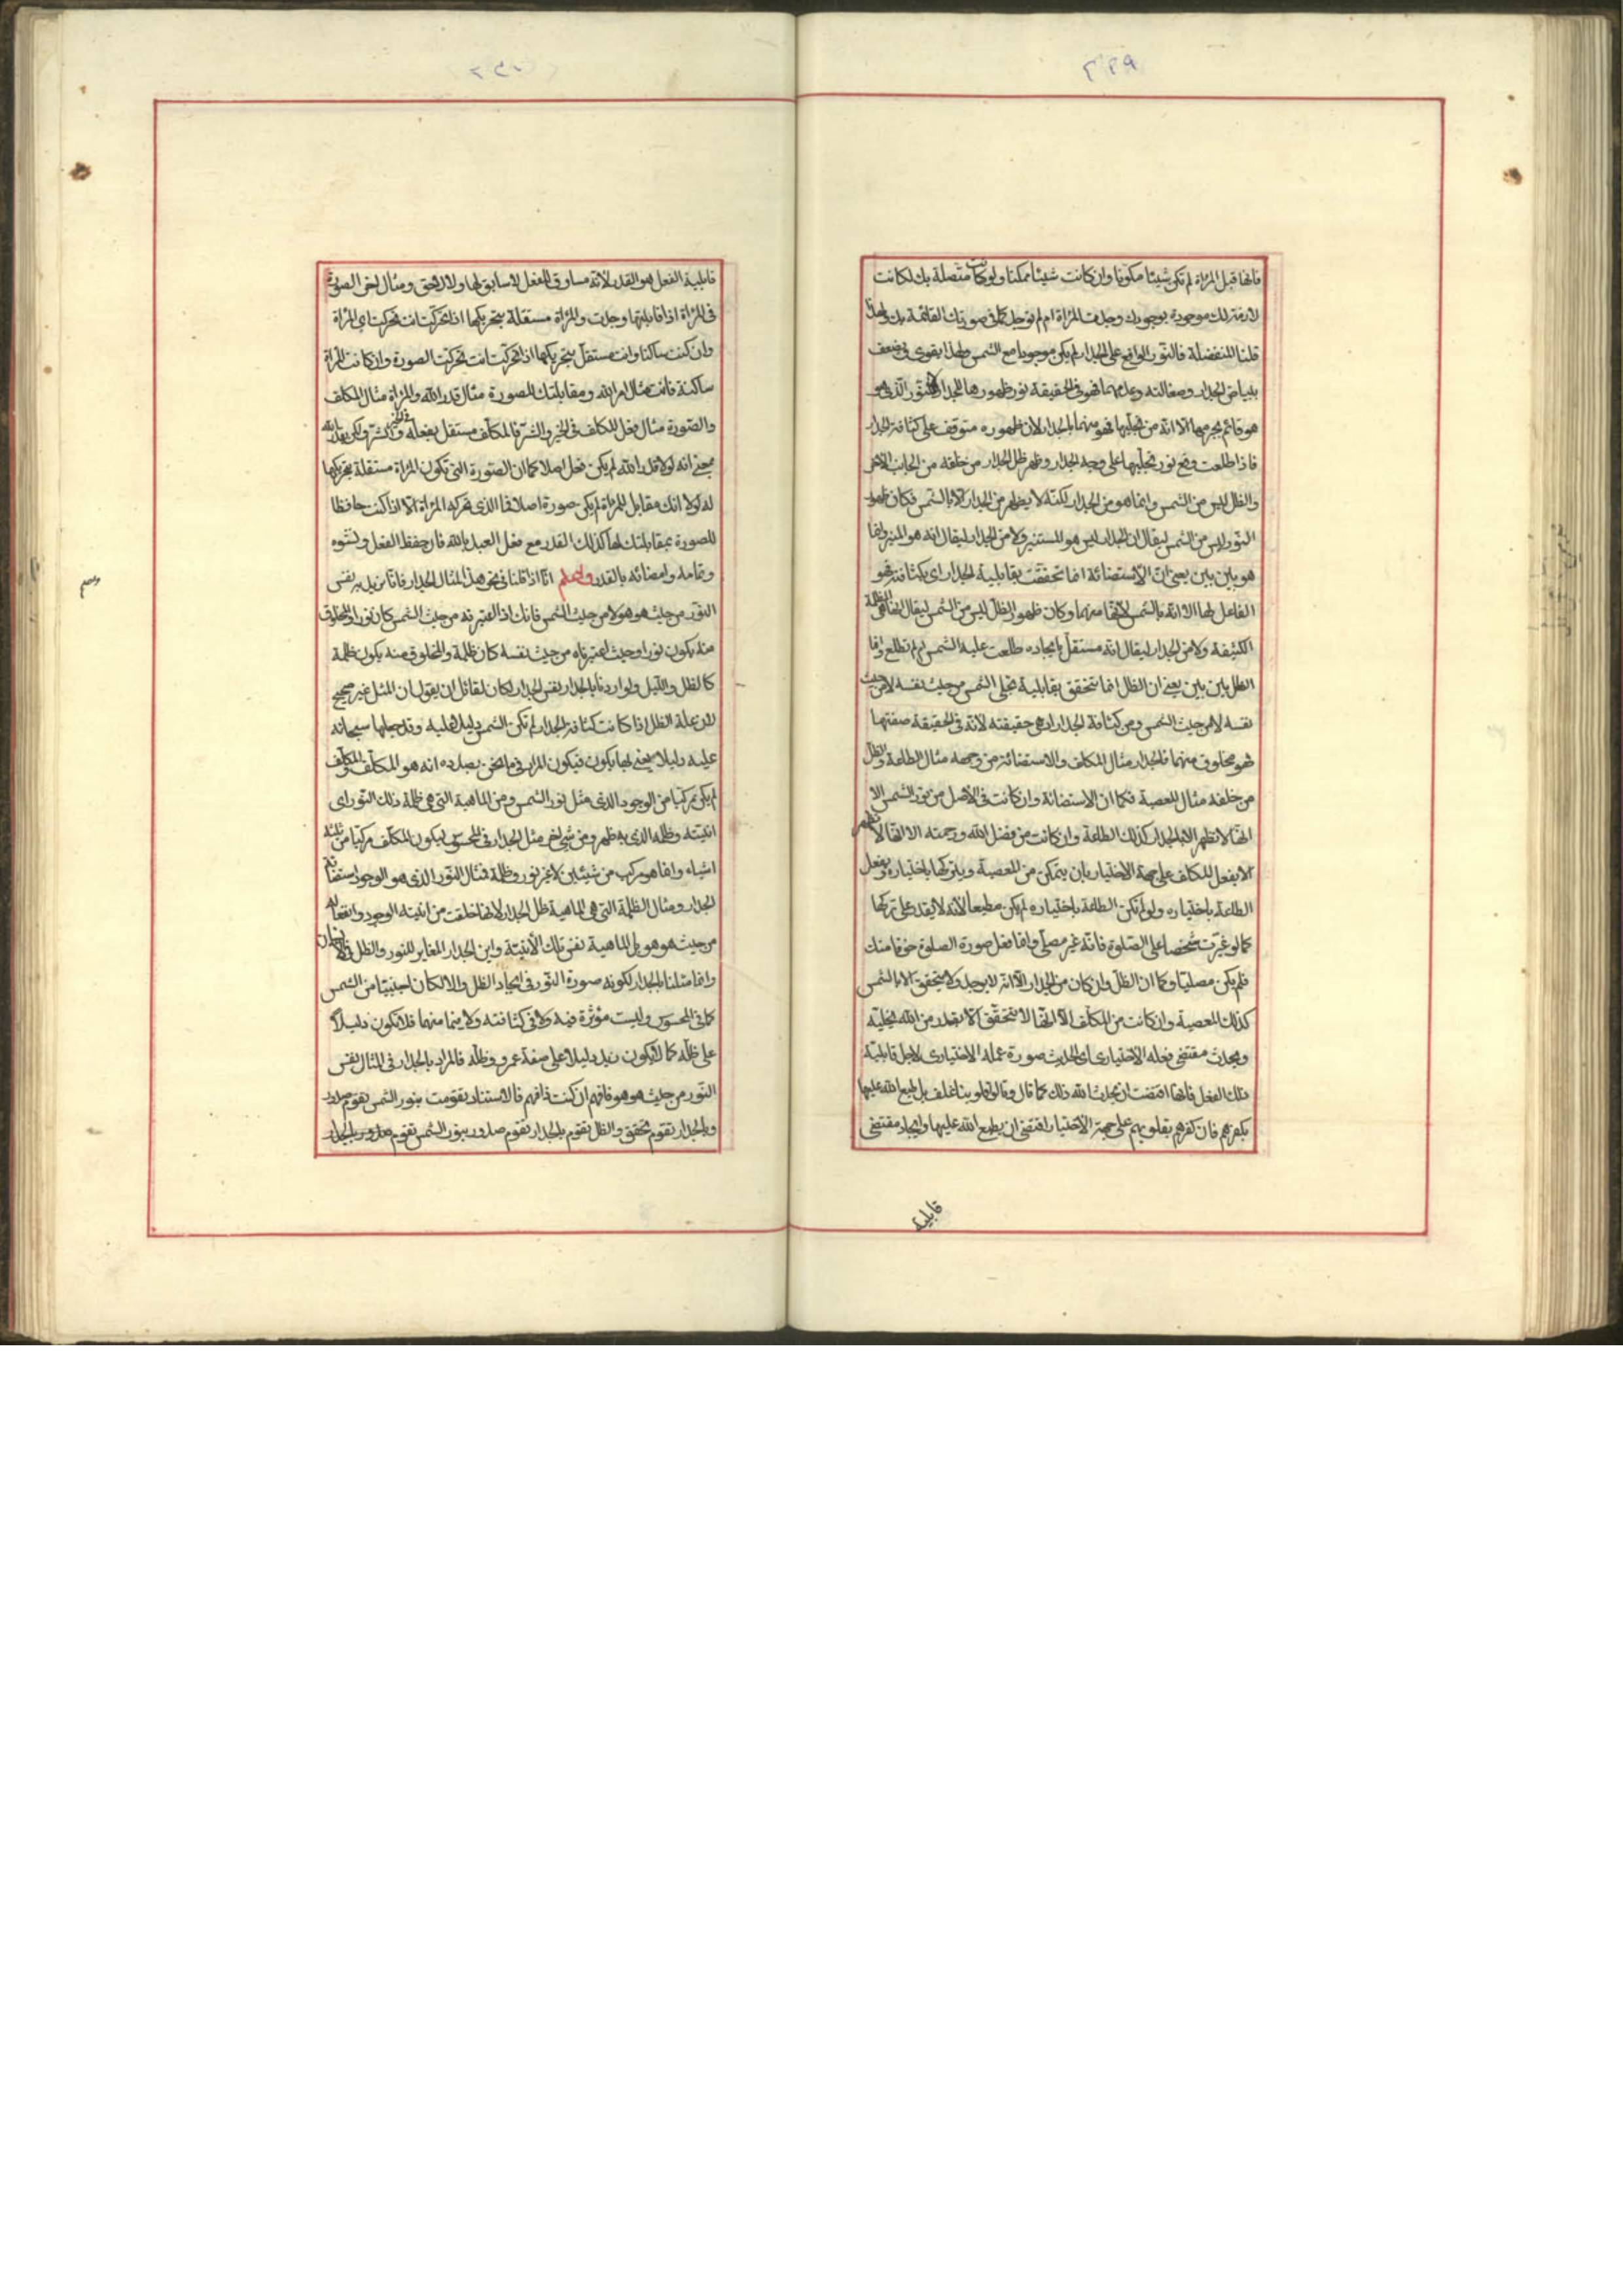 فانها قبل المرآة لم تكن شيئا مكونا وان كانت شيئا ممكنا ولو كانت متصلة بك لكانت
لازمة لك موجودة بوجودك وجدت المرآة ام لم توجد كما في صورتك القائمة بك ولهذا
قلنا المنفصلة فالنور الواقع على الجدار لم يكن موجودا مع الشمس ولهذا يقوى ويضعف
ببياض الجدار وصقالته وعدمهما فهو في الحقيقة نور ظهورها للجدار لا النور الذي هو
هو قائم بجرمها الا انه من تجليها فهو منهما بالجدار لان ظهوره متوقف على كثافة الجدار
فاذا طلعت وقع نور تجليها على وجه الجدار وظهر ظل الجدار من خلفه من الجانب الاخر
والظل ليس من الشمس وانما هو من الجدار لكنه لا يظهر من الجدار الا بالشمس فكان ظهور
النور ليس من الشمس ليقال ان الجدار ليس هو المستنير ولا من الجدار ليقال انه هو المنير وانما
هو بين بين يعني ان الاستضائة انما تحققت بقابلية الجدار اي بكثافته فهو
الفاعل لها الا انه بالشمس لانها منهما وكان ظهور الظل ليس من الشمس ليقال انها هي المظلمة
الكثيفة ولا من الجدار ليقال انه مستقل بايجاده طلعت عليه الشمس ام لم تطلع وانما
الظل بين بين يعني ان الظل انما يتحقق بقابلية تجلي الشمس من حيث نفسه لا من حيث
نفسه لا من حيث الشمس ومن كثافة الجدار اي هي حقيقته لانه في الحقيقة صفتها
فهو مخلوق منهما فالجدار مثال المكلف والاستضائة من وجهه مثال الطاعة والظل
من خلفه مثال المعصية فكما ان الاستضائة وان كانت في الاصل من نور الشمس الا
انها لا تظهر الا بالجدار كذلك الطاعة وان كانت من فضل الله ورحمته الا انها لا تظهر
الا بفعل المكلف على جهة الاختيار بان يتمكن من المعصية ويتركها باختياره ويفعل
الطاعة باختياره ولو لم تكن الطاعة باختياره لم يكن مطيعا لانه لا يقدر على تركها
كما لو شخصا على الصلوة فانه غير مصلي وانما فعل صورة الصلوة خوفا منك
فلم يكن مصليا وكما ان الظل وان كان من الجدار الا انه لا يوجد ولا يتحقق الا بالشمس
كذلك المعصية وان كانت من المكلف الا انها لا تتحقق الا بقدر من الله بتخليته
ويحدث مقتضى فعله الاختياري اي الحديث صورة عمله الاختياري لاجل قابلية
ذلك الفعل فانها اقتضت ان يحدث الله ذلك كما قال وقالوا قلوبنا غلف بل طبع الله عليها
بكفرهم فان كفرهم بقلوبهم على جهة الاختيار اقتضى ان يطبع الله عليها وايجاد مقتضى
قابلية
قابلية الفعل هو القدر لانه مساوق للفعل لا سابق لها ولا لاحق ومثال اخر الصورة
في المرآة اذا قابلتها وجدت والمرآة مستقلة بتحريكها اذا تحركت انت تحركت اي المرآة
وان كنت ساكنا وانت مستقل بتحريكها اذا تحركت انت تحركت الصورة وان كانت المرآة
ساكنة فانت مثال امر الله ومقابلتك للصورة مثال قدر الله والمرآة مثال المكلف
والصورة مثال فعل المكلف في الخير والشر فالمكلف مستقل بفعله في الخير والشر ولكن بقدر الله
بمعنى انه لولا قدر الله لم يكن فعل اصلا كما ان الصورة التي تكون المرآة مستقلة بتحريكها
له لولا انك مقابل للمرآة لم يكن صورة اصلا فما الذي تحركه المرآة الا اذا كنت حافظا
للصورة بمقابلتك لها كذلك القدر مع فعل العبد بالله فان حفظ الفعل ونشوه
وتمامه وامضائه بالقدر واعلم انا اذا قلنا في نحو هذا المثال الجدار فانا نريد به نفس
النور من حيث هو هو لا من حيث الشمس فانك اذا اعتبرته من حيث الشمس كان نورا والمخلوق
منه يكون نورا وحيث اعتبرناه من حيث نفسه كان ظلمة والمخلوق منه يكون ظلمة
كالظل والليل ولو اردنا بالجدار نفس الجدار لكان لقائل ان يقول ان المثل غير صحيح
لان علة الظل اذا كانت كثافة الجدار لم تكن الشمس دليلا عليه وقد جعلها سبحانه
عليه دليلا يعني بها يكون فيكون المراد في ما نحن بصدده انه هو المكلف والمكلف
لم يكن مركبا من الوجود الذي مثل نور الشمس ومن الماهية التي هي ظلمة ذلك النور اي
انيته وظله الذي به ظهر ومن شيء اخر مثل الجدار في المحسوس ليكون المكلف مركبا من ثلثة
اشياء وانما هو مركب من شيئين لا غير نور وظلمة فمثال النور الذي هو الوجود استضائة
الجدار ومثال الظلمة التي هي الماهية ظل الجدار لانها خلقت من انية الوجود وانفعاله
من حيث هو هو بل الماهية نفس تلك الانية واين الجدار المغاير للنور والظل في الانسان
وانما مثلنا بالجدار لكونه صورة النور في ايجاد الظل والا لكان اجنبيا من الشمس
كما في المحسوس وليست مؤثرة فيه ولا في كثافته ولا منهما فلا تكون دليلا
على ظله كما لا يكون زيد دليلا على صفة عمرو وظله فالمراد بالجدار في المثال نفس
النور من حيث هو هو فافهم ان كنت تفهم فالاستناد تقومت بنور الشمس تقوم صدور
وبالجدار تقوم تحقق والظل تقوم بالجدار تقوم صدور بنور الشمس تقوم